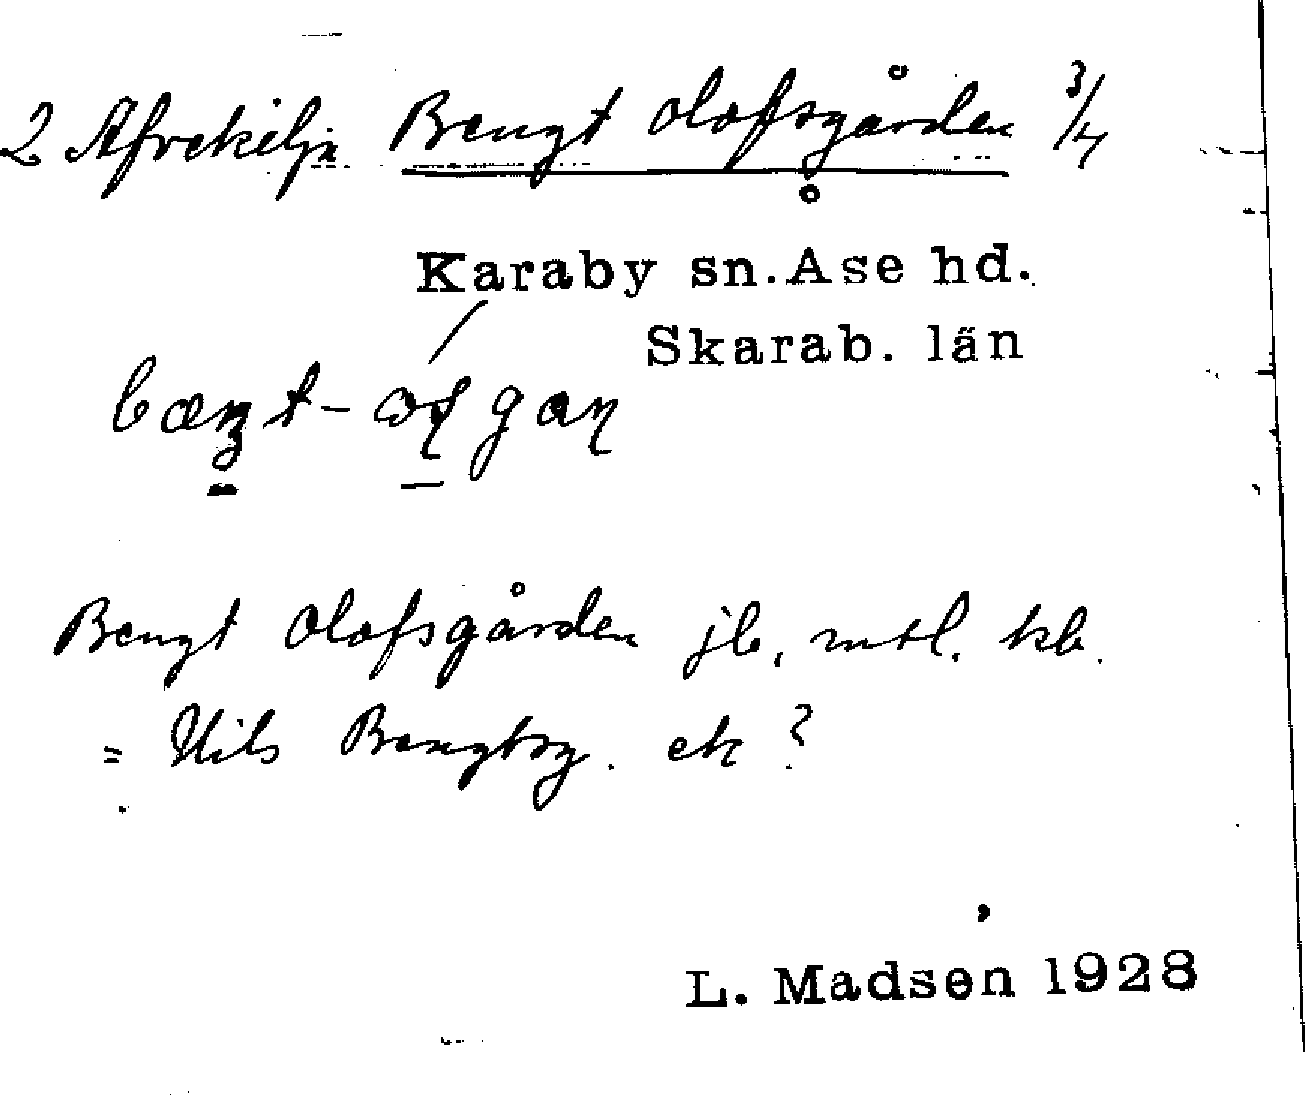 2 Afrekilja Bengt Olofsgården 3/4
Karaby sn. Åse hd.
Skarab. län
Bengt Olofsgården jb, mtl. kb.
= Nils Bengtsg. ek ?
L. Madsen 1928